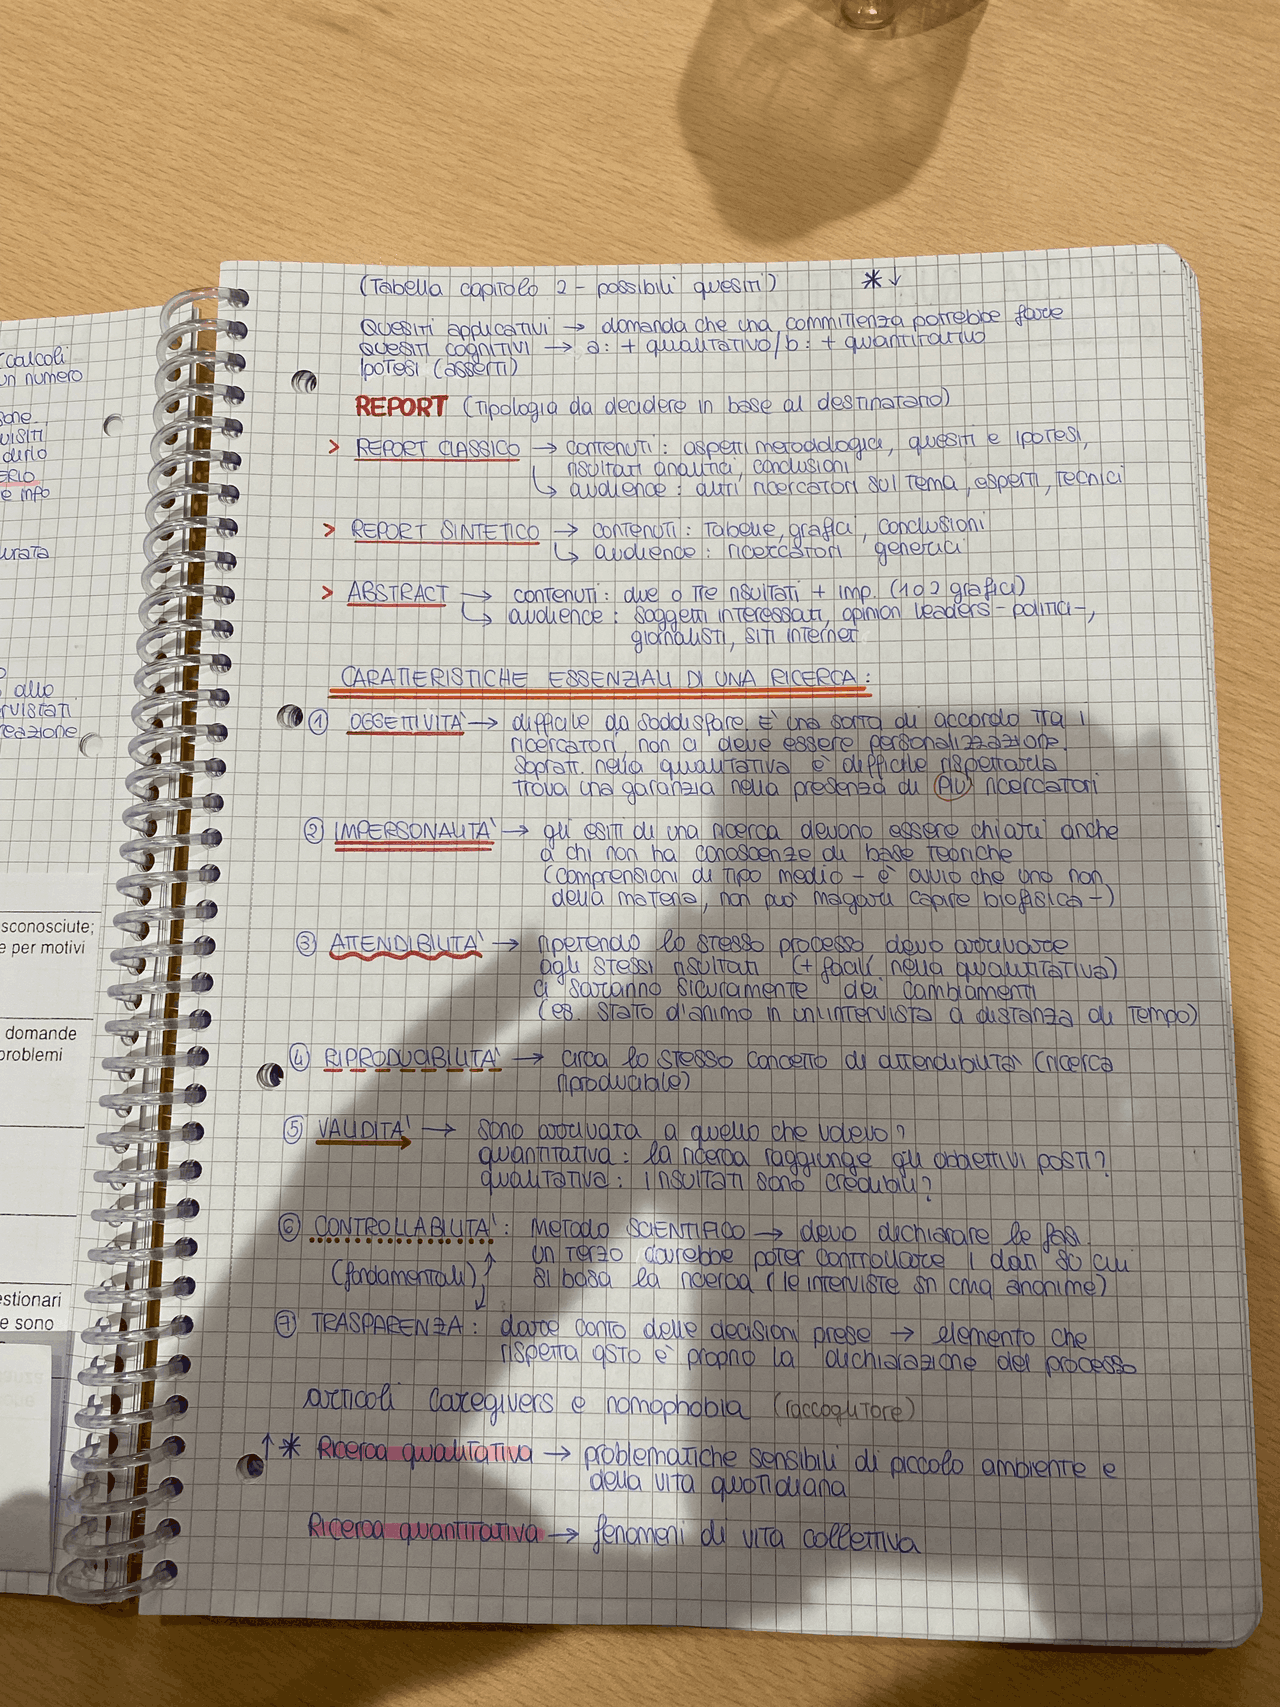 calcoli
un numero
sone
UISITI
durlo
ERIO
e info
urata
allo
rvistati
reazione
sconosciute;
e per motivi
domande
problemi
estionari
e sono
(Tabella capitolo 2 - possibili quesiti) * ↓
Quesiti applicativi → domanda che una committenza potrebbe fare
Quesiti cognitivi → a: + qualitativo / b: + quantitativo
Ipotesi (asserti)
REPORT (Tipologia da decidere in base al destinatario)
> REPORT CLASSICO → contenuti: aspetti metodologici, quesiti e ipotesi,
risultati analitici, conclusioni
↳ audience: altri ricercatori sul tema, esperti, tecnici
> REPORT SINTETICO → contenuti: tabelle, grafici, conclusioni
↳ audience: ricercatori generici
> ABSTRACT → contenuti: due o tre risultati + imp. (1 o 2 grafici)
↳ audience: soggetti interessati, opinion leaders - politici -,
giornalisti, siti internet
CARATTERISTICHE ESSENZIALI DI UNA RICERCA:
① OGGETTIVITA' → difficile da soddisfare. E' una sorta di accordo tra i
ricercatori, non ci deve essere personalizzazione.
Sopratt. nella qualitativa è difficile rispettarla
trova una garanzia nella presenza di PIÙ ricercatori
② IMPERSONALITA' → gli esiti di una ricerca devono essere chiari anche
a chi non ha conoscenze di base teoriche
(comprensioni di tipo medio - è ovvio che uno non
della materia, non può magari capire biofisica -)
③ ATTENDIBILITA' → ripetendo lo stesso processo devo arrivare
agli stessi risultati (+ facile nella quantitativa)
ci saranno sicuramente dei cambiamenti
(es. stato d'animo in un'intervista a distanza di tempo)
④ RIPRODUCIBILITA' → circa lo stesso concetto di attendibilità (ricerca
riproducibile)
⑤ VALIDITA' → sono arrivata a quello che volevo?
quantitativa: la ricerca raggiunge gli obiettivi posti?
qualitativa: i risultati sono credibili?
⑥ CONTROLLABILITA': METODO SCIENTIFICO → devo dichiarare le fasi.
un terzo dovrebbe poter controllare i dati su cui
(fondamentali) si basa la ricerca (le interviste sn cmq anonime)
⑦ TRASPARENZA: dare conto delle decisioni prese → elemento che
rispetta qsto è proprio la dichiarazione del processo
articoli caregivers e nomophobia (raccoglitore)
↑ * Ricerca qualitativa → problematiche sensibili di piccolo ambiente e
della vita quotidiana
Ricerca quantitativa → fenomeni di vita collettiva